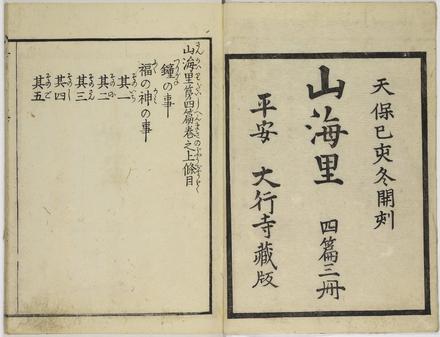 天保己亥冬開刻
山海里 四篇三冊
平安 大行寺藏版
山海里第四篇卷之上條目
鐘の事
福の神の事
其一
其二
其三
其四
其五